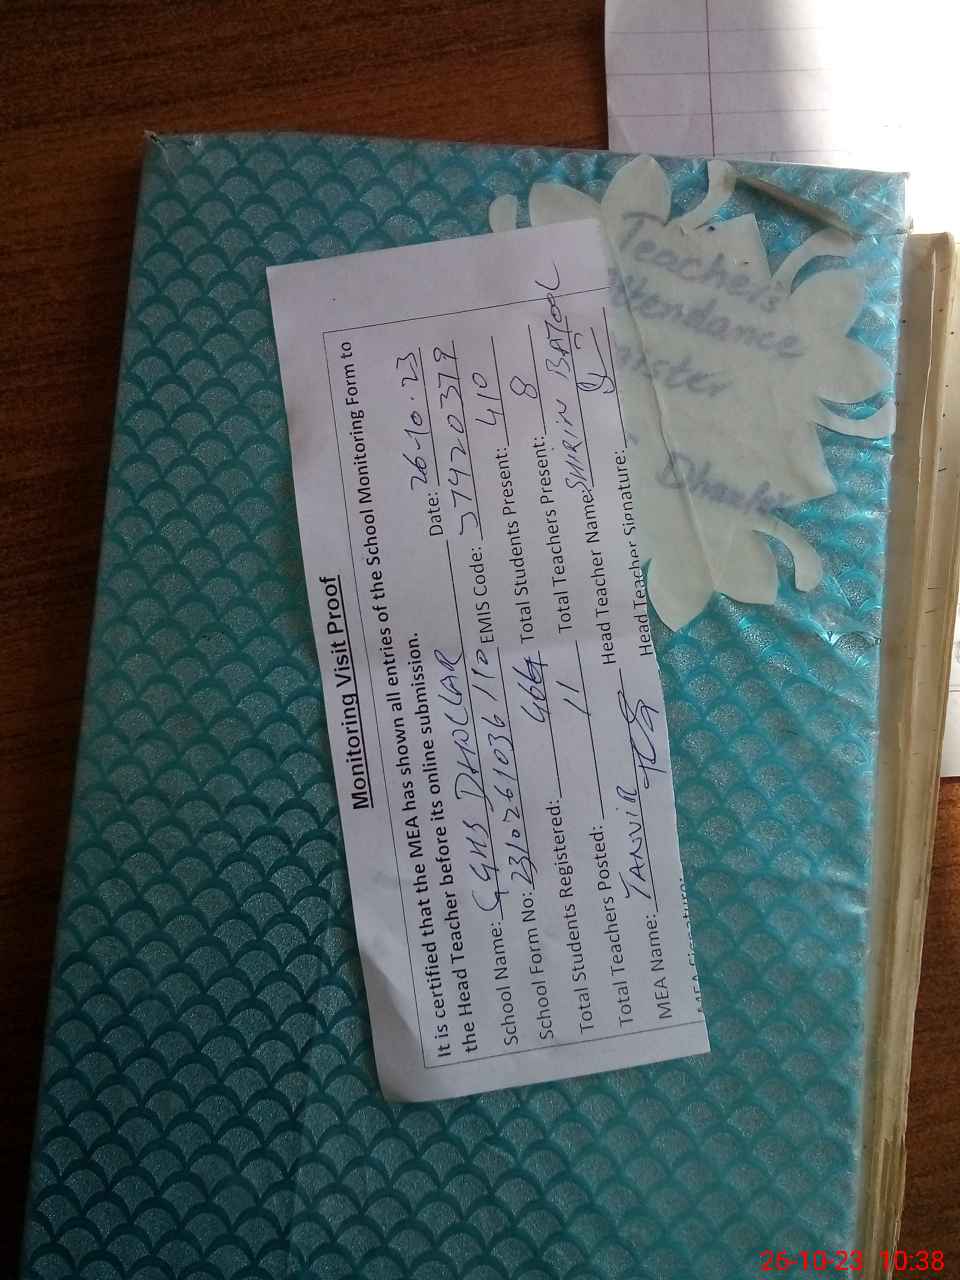 Monitoring Visit Proof
It is certified that the MEA has shown all entries of the School Monitoring Form to
the Head Teacher before its online submission.
School Name: GGHS DHOLLAR Date: 26-10-23
School Form No: 2310261036110 EMIS Code: 37420379
Total Students Registered: 466 Total Students Present: 410
Total Teachers Posted: 11 Total Teachers Present: 8
MEA Name: TANVIR Head Teacher Name: SHIRIN BATOOL
MEA Signature: Head Teacher Signature:
Teachers
Attendance
26-10-23 10:38